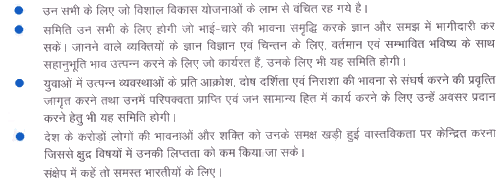 उन सभी के लिए जो विशाल विकास योजनाओं के लाभ से वंचित रह गये है ।
समिति उन सभी के लिए होगी जो भाई-चारे की भावना समृद्धि करके ज्ञान और समझ में भागीदारी कर
सकें। जानने वाले व्यक्तियों के ज्ञान विज्ञान एवं चिन्तन के लिए, वर्तमान एवं सम्भावित भविष्य के साथ
सहानुभूति भाव उत्पन्न करने के लिए जो कार्यरत हैं, उनके लिए भी यह समिति होगी।
युवाओं में उत्पन्न व्यवस्थाओं के प्रति आक्रोश, दोष दर्शिता एवं निराशा की भावना से संघर्ष करने की प्रवृत्ति
जागृत करने तथा उनमें परिपक्वता प्राप्ति एवं जन सामान्य हित में कार्य करने के लिए उन्हें अवसर प्रदान
करने हेतु भी यह समिति होगी।
देश के करोड़ों लोगों की भावनाओं और शक्ति को उनके समक्ष खड़ी हुई वास्तविकता पर केन्द्रित करना
जिससे क्षुद्र विषयों में उनकी लिप्तता को कम किया जा सके।
संक्षेप में कहें तो समस्त भारतीयों के लिए।